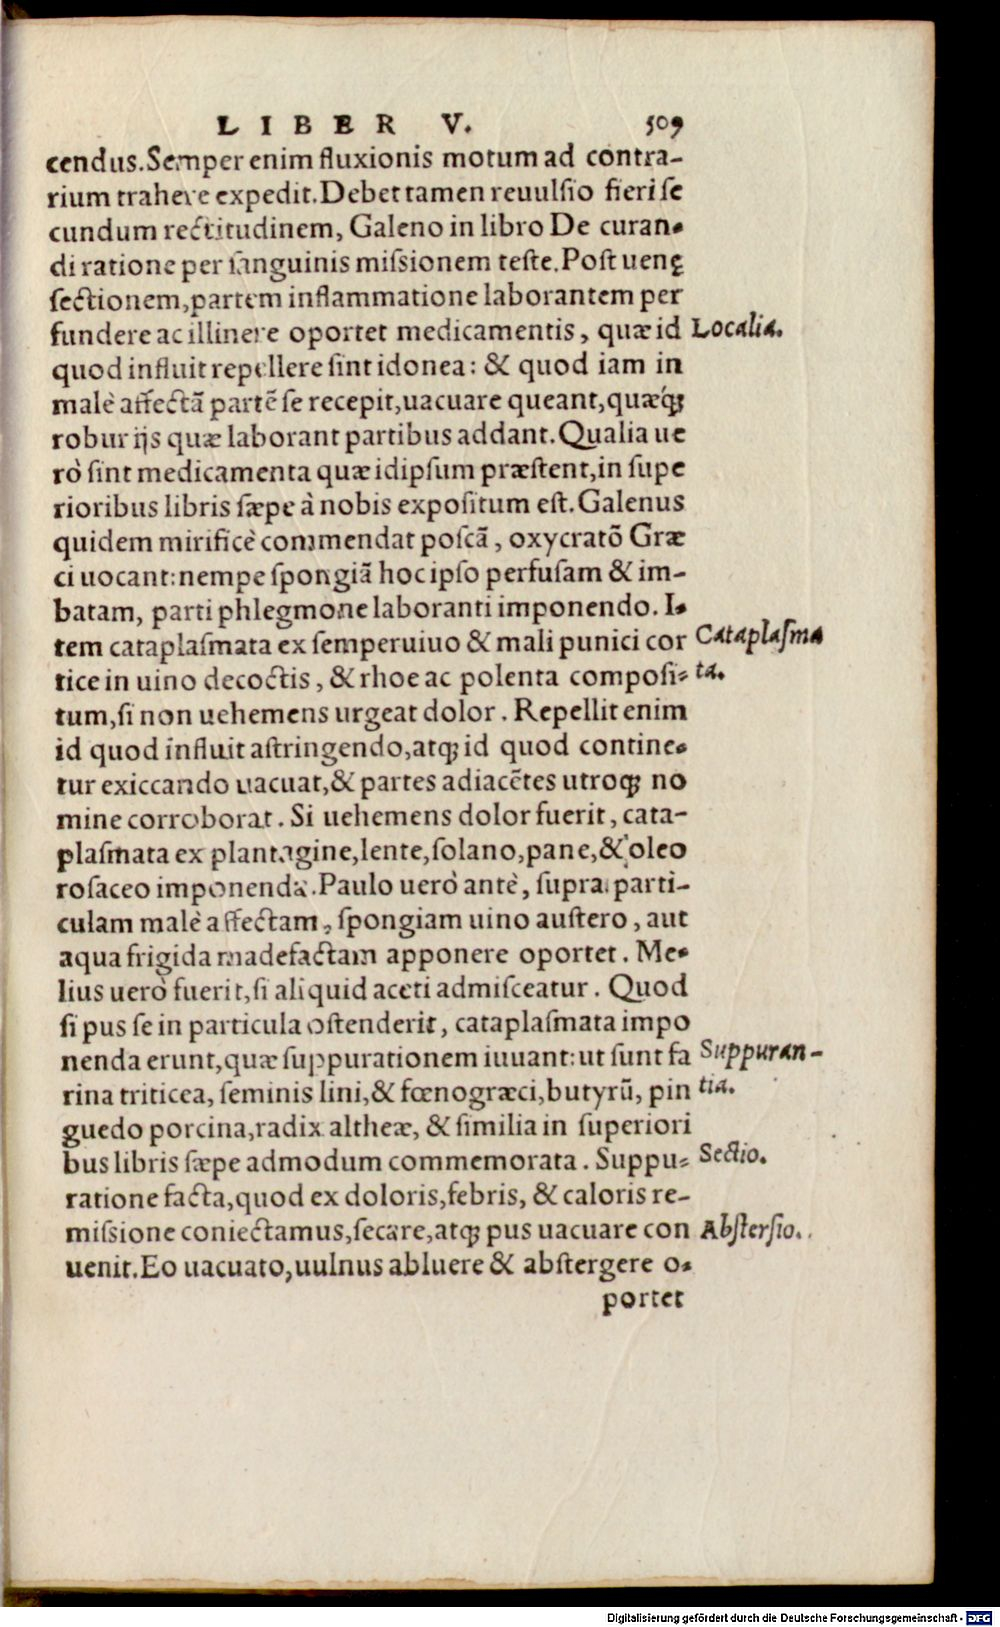 LIBER V. 509
cendus. Semper enim fluxionis motum ad contra-
rium trahere expedit. Debet tamen reuulsio fieri se
cundum rectitudinem, Galeno in libro De curan-
di ratione per sanguinis missionem teste. Post uenę
sectionem, partem inflammatione laborantem per
fundere ac illinere oportet medicamentis, quæ id Localia.
quod influit repellere sint idonea: & quod iam in
malè affectã partẽ se recepit, uacuare queant, quæq́;
robur ijs quæ laborant partibus addant. Qualia ue
rò sint medicamenta quæ idipsum præstent, in supe
rioribus libris sæpe à nobis expositum est. Galenus
quidem mirificè commendat poscã, oxycratõ Græ
ci uocant: nempe spongiã hoc ipso perfusam & im-
batam, parti phlegmone laboranti imponendo. I-
tem cataplasmata ex semperuiuo & mali punici cor Cataplasma
tice in uino decoctis, & rhoe ac polenta composi- ta.
tum, si non uehemens urgeat dolor. Repellit enim
id quod influit astringendo, atq; id quod contine-
tur exiccando uacuat, & partes adiacẽtes utroq; no
mine corroborat. Si uehemens dolor fuerit, cata-
plasmata ex plantagine, lente, solano, pane, & oleo
rosaceo imponenda. Paulo uerò antè, supra parti-
culam malè affectam, spongiam uino austero, aut
aqua frigida madefactam apponere oportet. Me-
lius uerò fuerit, si aliquid aceti admisceatur. Quod
si pus se in particula ostenderit, cataplasmata impo
nenda erunt, quæ suppurationem iuuant: ut sunt fa Suppuran-
rina triticea, seminis lini, & fœnogræci, butyrũ, pin tia.
guedo porcina, radix altheæ, & similia in superiori
bus libris sæpe admodum commemorata. Suppu- Sectio.
ratione facta, quod ex doloris, febris, & caloris re-
missione coniectamus, secare, atq; pus uacuare con Abstersio.
uenit. Eo uacuato, uulnus abluere & abstergere o-
portet
Digitalisierung gefördert durch die Deutsche Forschungsgemeinschaft - DFG